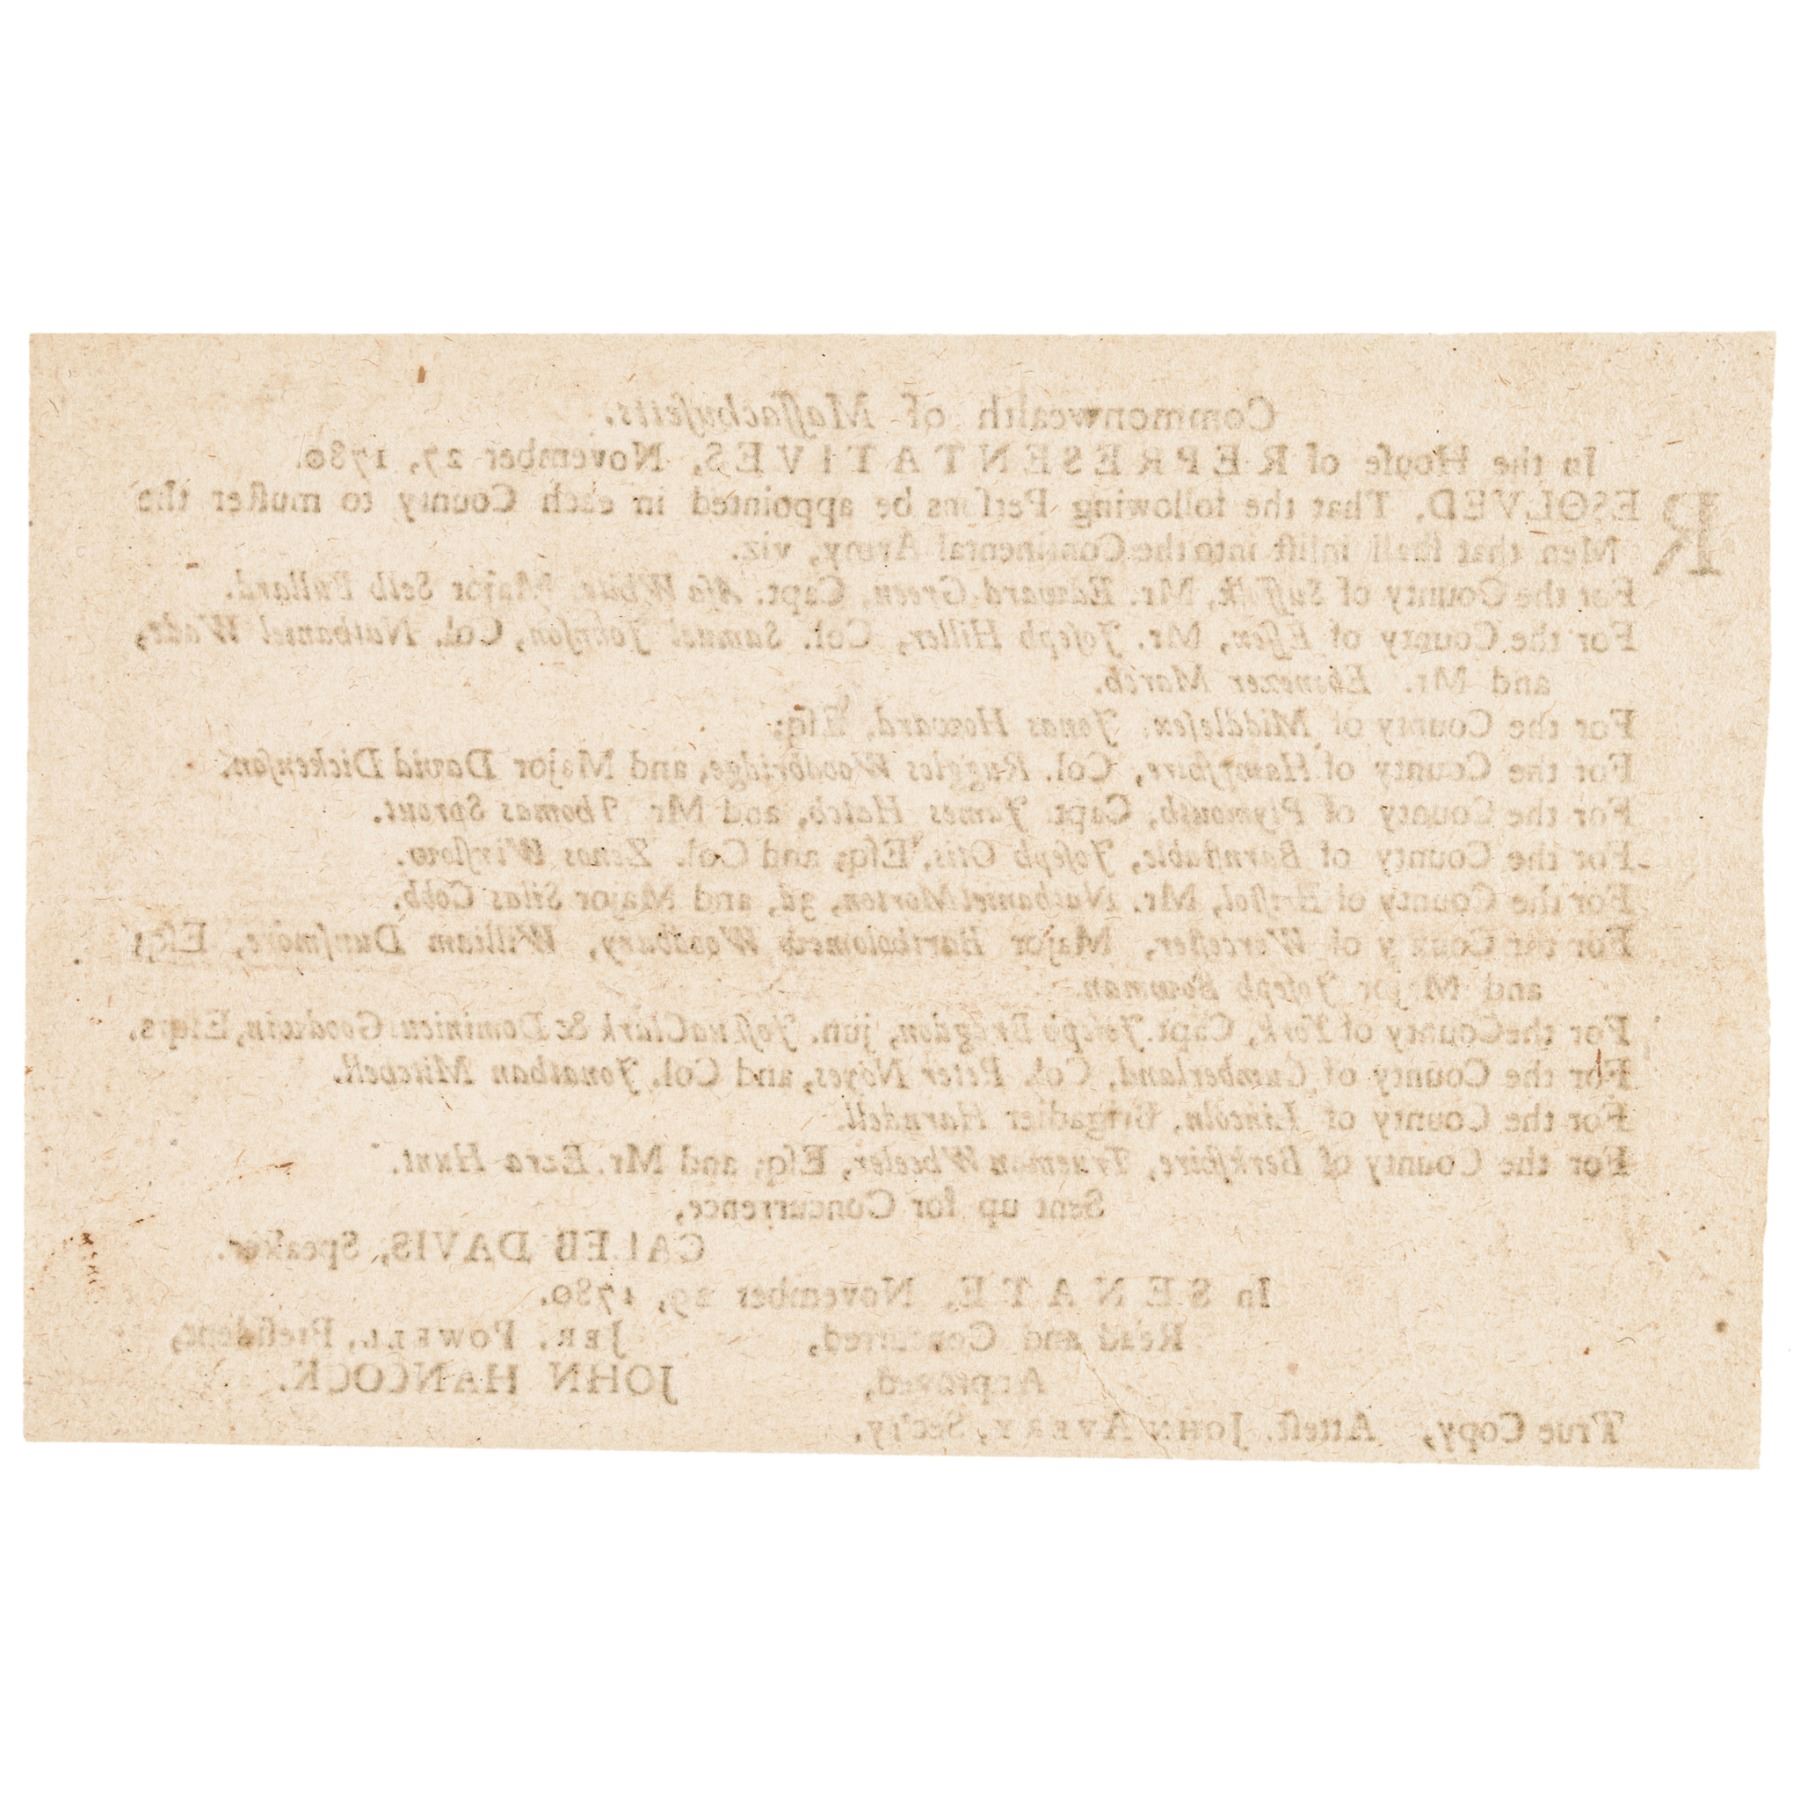 Commonwealth of Maſſachuſetts.
In the Houſe of REPRESENTATIVES, November 27, 1780.
RESOLVED. That the following Perſons be appointed in each County to muſter the
Men that ſhall inliſt into the Continental Army, viz.
For the County of Suffolk, Mr. Edward Green, Capt. Aſa White, Major Seth Bullard.
For the County of Eſſex, Mr. Joſeph Hiller, Col. Samuel Johnſon, Col. Nathaniel Wade,
and Mr. Ebenezer March.
For the County of Middleſex, Jonas Howard, Eſq;
For the County of Hampſhire, Col. Ruggles Woodbridge, and Major David Dickenſon.
For the County of Plymouth, Capt. James Hatch, and Mr Thomas Sprout.
For the County of Barnſtable, Joſeph Otis, Eſq; and Col. Zenas Winſlow.
For the County of Briſtol, Mr. Nathaniel Morton, 3d, and Major Silas Cobb.
For the County of Worceſter, Major Bartholomew Woodbury, William Dunſmore, Eſq;
and Major Joſeph Bowman.
For the County of York, Capt. Joſeph Bragdon, jun. Joſhua Clark & Dominicus Goodwin, Eſqrs.
For the County of Cumberland, Col. Peter Noyes, and Col. Jonathan Mitchell.
For the County of Lincoln, Brigadier Harndell.
For the County of Berkſhire, Trueman Wheeler, Eſq; and Mr. Ezra Hunt.
Sent up for Concurrence,
CALEB DAVIS, Speaker.
In SENATE, November 29, 1780.
Read and Concurred, JER. POWELL, Preſident,
Approved, JOHN HANCOCK.
True Copy, Atteſt. JOHN AVERY, Sec'ry,